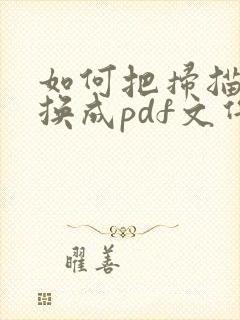 如何把扫描
换成pdf文件
曜善